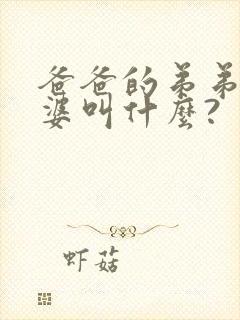 爸爸的弟弟
婆叫什麼?
虾菇